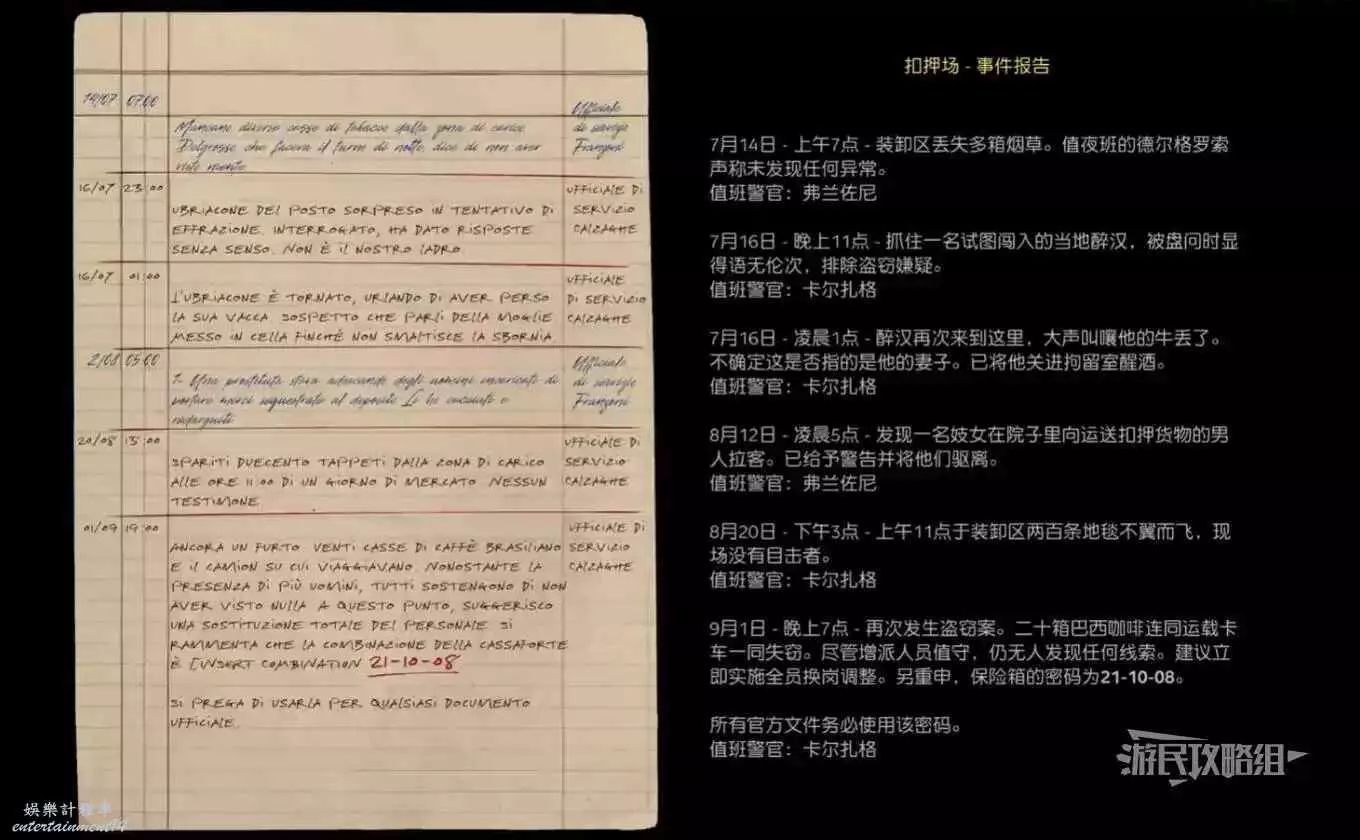 14/07 07:00
Mancano diverse casse di tabacco dalla zona di carico
Delgrosso che faceva il turno di notte, dice di non aver
visto niente
Ufficiale
di servizio
Franzoni
16/07 23:00
UBRIACONE DEL POSTO SORPRESO IN TENTATIVO DI
EFFRAZIONE. INTERROGATO, HA DATO RISPOSTE
SENZA SENSO. NON È IL NOSTRO LADRO.
UFFICIALE DI
SERVIZIO
CALZAGHE
16/07 01:00
L'UBRIACONE È TORNATO, URLANDO DI AVER PERSO
LA SUA VACCA. SOSPETTO CHE PARLI DELLA MOGLIE
MESSO IN CELLA FINCHÉ NON SMALTISCE LA SBORNIA.
UFFICIALE
DI SERVIZIO
CALZAGHE
2/08 05:00
prostituta stava adescando degli uomini incaricati di
portare merci al deposito Le ho e
Ufficiale
di servizio
Franzoni
20/08 15:00
SPARITI DUECENTO TAPPETI DALLA ZONA DI CARICO
ALLE ORE 11:00 DI UN GIORNO DI MERCATO. NESSUN
TESTIMONE.
UFFICIALE DI
SERVIZIO
CALZAGHE
01/09 19:00
ANCORA UN FURTO VENTI CASSE DI CAFFÈ BRASILIANO
E IL CAMION SU CUI VIAGGIAVANO. NONOSTANTE LA
PRESENZA DI PIÙ UOMINI, TUTTI SOSTENGONO DI NON
AVER VISTO NULLA A QUESTO PUNTO, SUGGERISCO
UNA SOSTITUZIONE TOTALE DEL PERSONALE SI
RAMMENTA CHE LA COMBINAZIONE DELLA CASSAFORTE
È [INSERT COMBINATION 21-10-08
SI PREGA DI USARLA PER QUALSIASI DOCUMENTO
UFFICIALE.
UFFICIALE DI
SERVIZIO
CALZAGHE
扣押场 - 事件报告
7月14日 - 上午7点 - 装卸区丢失多箱烟草。值夜班的德尔格罗索
声称未发现任何异常。
值班警官：弗兰佐尼
7月16日 - 晚上11点 - 抓住一名试图闯入的当地醉汉，被盘问时显
得语无伦次，排除盗窃嫌疑。
值班警官：卡尔扎格
7月16日 - 凌晨1点 - 醉汉再次来到这里，大声叫嚷他的牛丢了。
不确定这是否指的是他的妻子。已将他关进拘留室醒酒。
值班警官：卡尔扎格
8月12日 - 凌晨5点 - 发现一名妓女在院子里向运送扣押货物的男
人拉客。已给予警告并将他们驱离。
值班警官：弗兰佐尼
8月20日 - 下午3点 - 上午11点于装卸区两百条地毯不翼而飞，现
场没有目击者。
值班警官：卡尔扎格
9月1日 - 晚上7点 - 再次发生盗窃案。二十箱巴西咖啡连同运载卡
车一同失窃。尽管增派人员值守，仍无人发现任何线索。建议立
即实施全员换岗调整。另重申，保险箱的密码为21-10-08。
所有官方文件务必使用该密码。
值班警官：卡尔扎格
游民攻略组
娛樂計程車
entertainment14